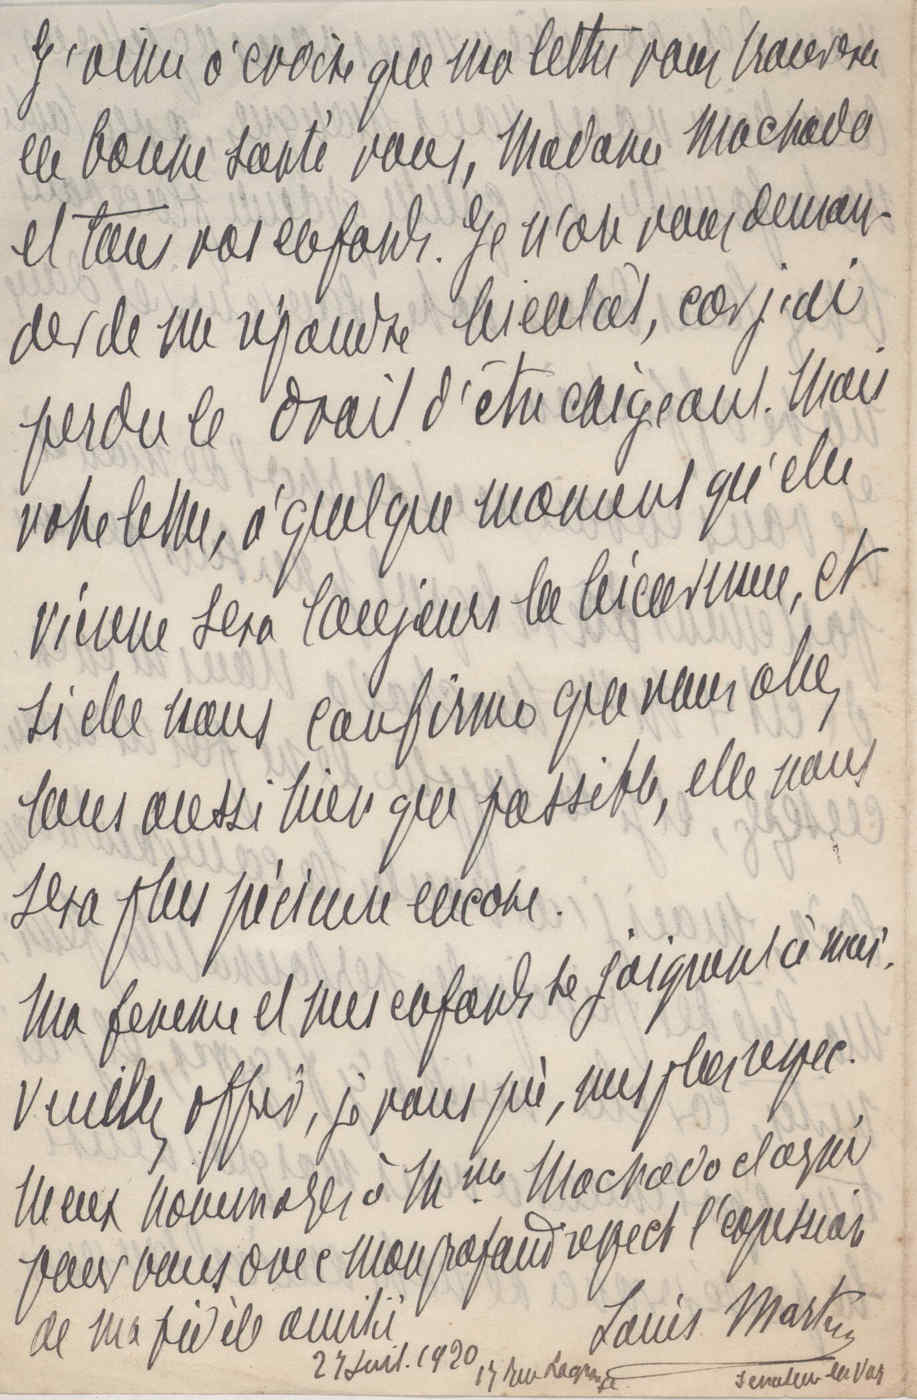 J'aime à croire que ma lettre vous trouvera
en bonne santé vous, Madame Machado
et tous vos enfants. Je n'ose vous deman-
der de me répondre bientôt, car j'ai
perdu le droit d'être exigeant. Mais
votre lettre, à quelque moment qu'elle
vienne sera toujours la bienvenue, et
si elle nous confirme que vous allez
tous aussi bien que possible, elle nous
sera plus précieuse encore.
Ma femme et mes enfants se joignent à moi.
Veuillez offrir, je vous prie, mes plus respec-
tueux hommages à Mme Machado et agréer
pour vous avec mon profond respect l'expression
de ma fidèle amitié
Louis Martin
27 Juil. 1920 17 rue Lagrange
Sénateur du Var